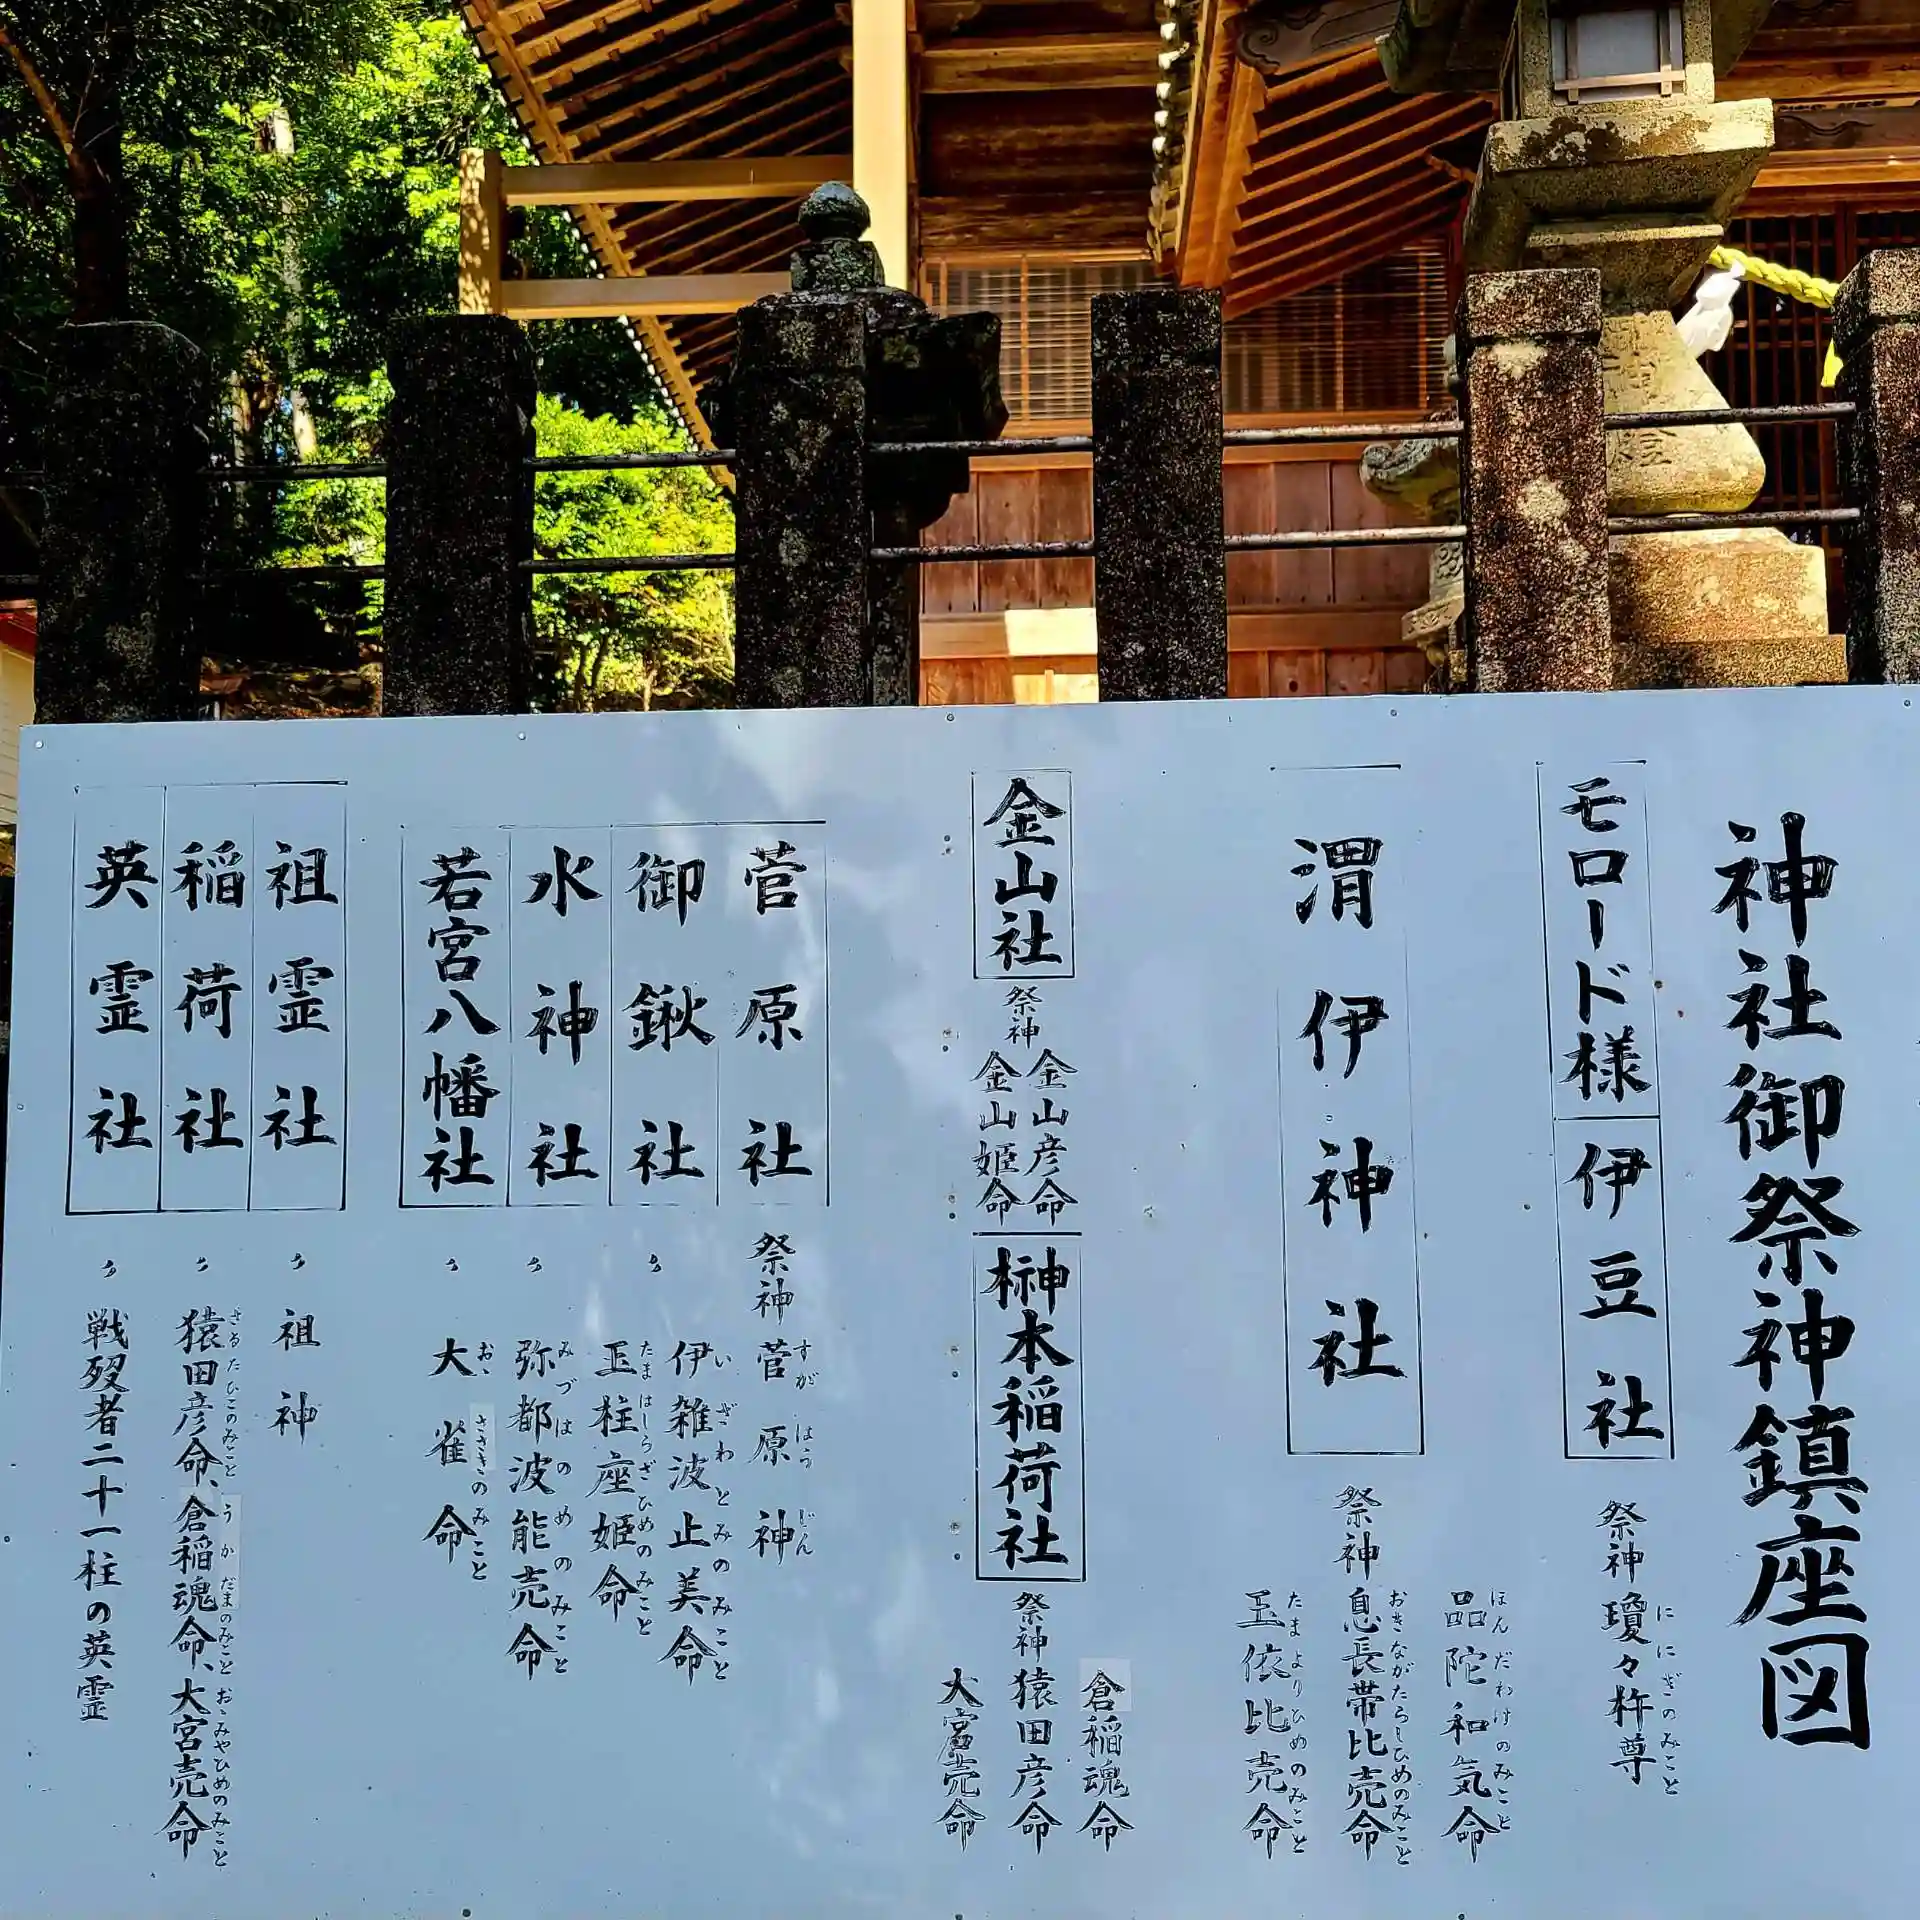 神社御祭神鎮座図
モロード様
伊豆社
祭神 瓊々杵尊
ににぎのみこと
渭伊神社
祭神
品陀和気命
ほんだわけのみこと
息長帯比売命
おきながたらしひめのみこと
玉依比売命
たまよりひめのみこと
金山社
祭神
金山彦命
金山姫命
榊本稲荷社
祭神
倉稲魂命
猿田彦命
大宮売命
菅原社
祭神 菅原神
すがはらじん
御鍬社
〃 伊雑波止美命
いざわとみのみこと
玉柱座姫命
たまはしらざひめのみこと
水神社
〃 弥都波能売命
みづはのめのみこと
若宮八幡社
〃 大雀命
おゝささきのみこと
祖霊社
〃 祖神
稲荷社
〃 猿田彦命、倉稲魂命、大宮売命
さるたひこのみこと うかだまのみこと おゝみやひめのみこと
英霊社
〃 戦歿者二十一柱の英霊